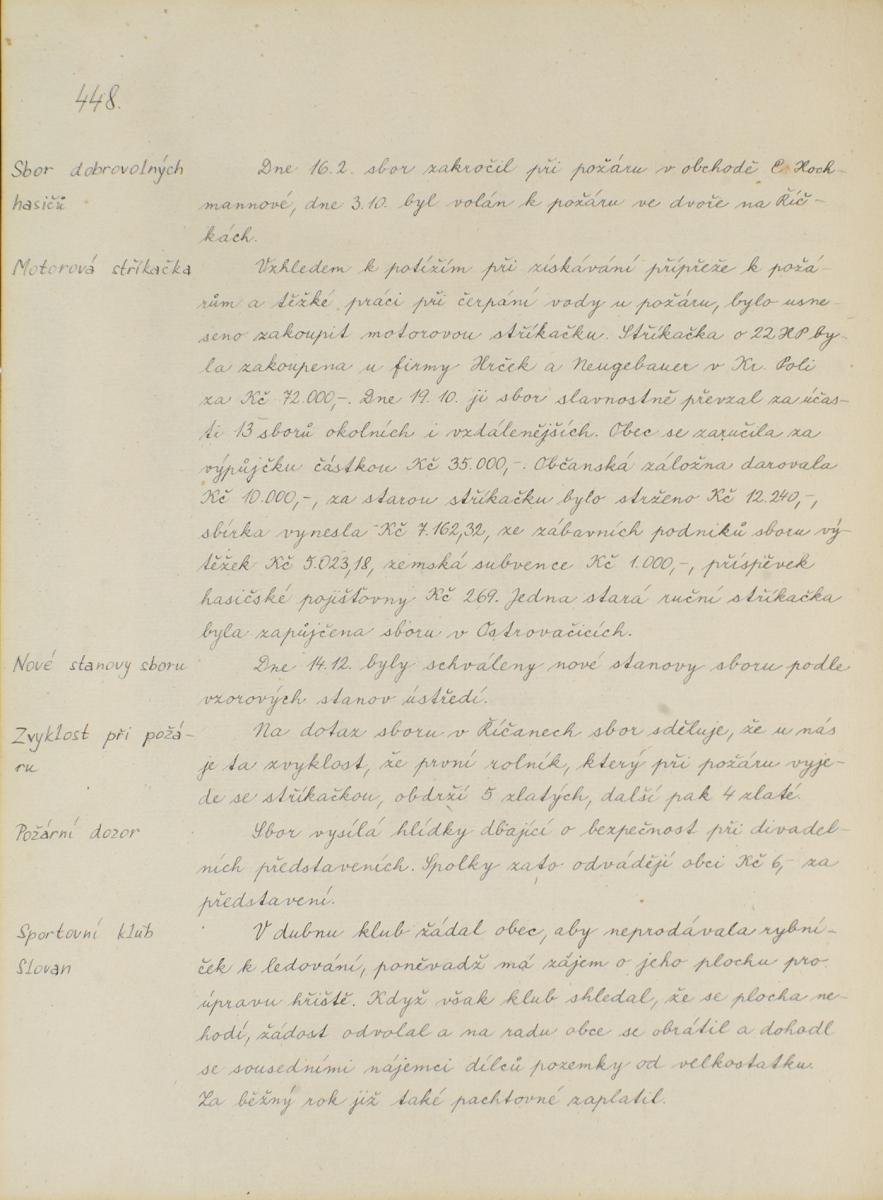 448.
Sbor dobrovolných
hasičů
Dne 16.2. sbor zakročil při požáru v obchodě C. Hoch-
mannové, dne 3.10. byl volán k požáru ve dvoře na Říč-
kách.
Motorová stříkačka
Vzhledem k potížím při získávání přípřeže k požá-
rům a těžké práci při čerpání vody u požáru, bylo usne-
seno zakoupit motorovou stříkačku. Stříkačka o 22 HP by-
la zakoupena u firmy Hrček a Neugebauer v Kr. Poli
za Kč 72.000,-. Dne 19.10. ji sbor slavnostně převzal za účas-
ti 13 sborů okolních i vzdálenějších. Obec se zaručila za
výpůjčku částkou Kč 35.000,-. Občanská záložna darovala
Kč 10.000,-, za starou stříkačku bylo strženo Kč 12.240,-,
sbírka vynesla Kč 7.162,32, ze zábavních podniků sboru vý-
těžek Kč 5.023,18, zemská subvence Kč 1.000,-, příspěvek
hasičské pojišťovny Kč 269. Jedna stará ruční stříkačka
byla zapůjčena sboru v Ostrovačicích.
Nové stanovy sboru
Dne 14.12. byly schváleny nové stanovy sboru podle
vzorových stanov ústředí.
Zvyklost při požá-
ru
Na dotaz sboru v Říčanech sbor sděluje, že u nás
je ta zvyklost, že první rolník, který při požáru vyje-
de se stříkačkou, obdrží 5 zlatých, další pak 4 zlaté.
Požární dozor
Sbor vysílá hlídky dbající o bezpečnost při divadel-
ních představeních. Spolky zato odvádějí obci Kč 6,- za
představení.
Sportovní klub
Slovan
V dubnu klub žádal obec, aby neprodávala rybní-
ček k ledování, poněvadž má zájem o jeho plochu pro
úpravu hřiště. Když však klub shledal, že se plocha ne-
hodí, žádost odvolal a na radu obce se obrátil a dohodl
se sousedními nájemci dílců pozemky od velkostatku.
Za běžný rok již také pachtovné zaplatil.